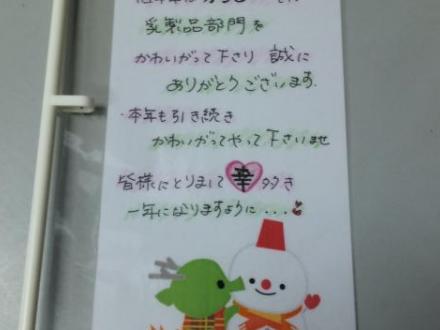 乳製品部門を
かわいがって下さり 誠に
ありがとうございます.
・本年も引き続き
かわいがってやって下さいませ
皆様にとりまして 幸 多き
一年になりますように...